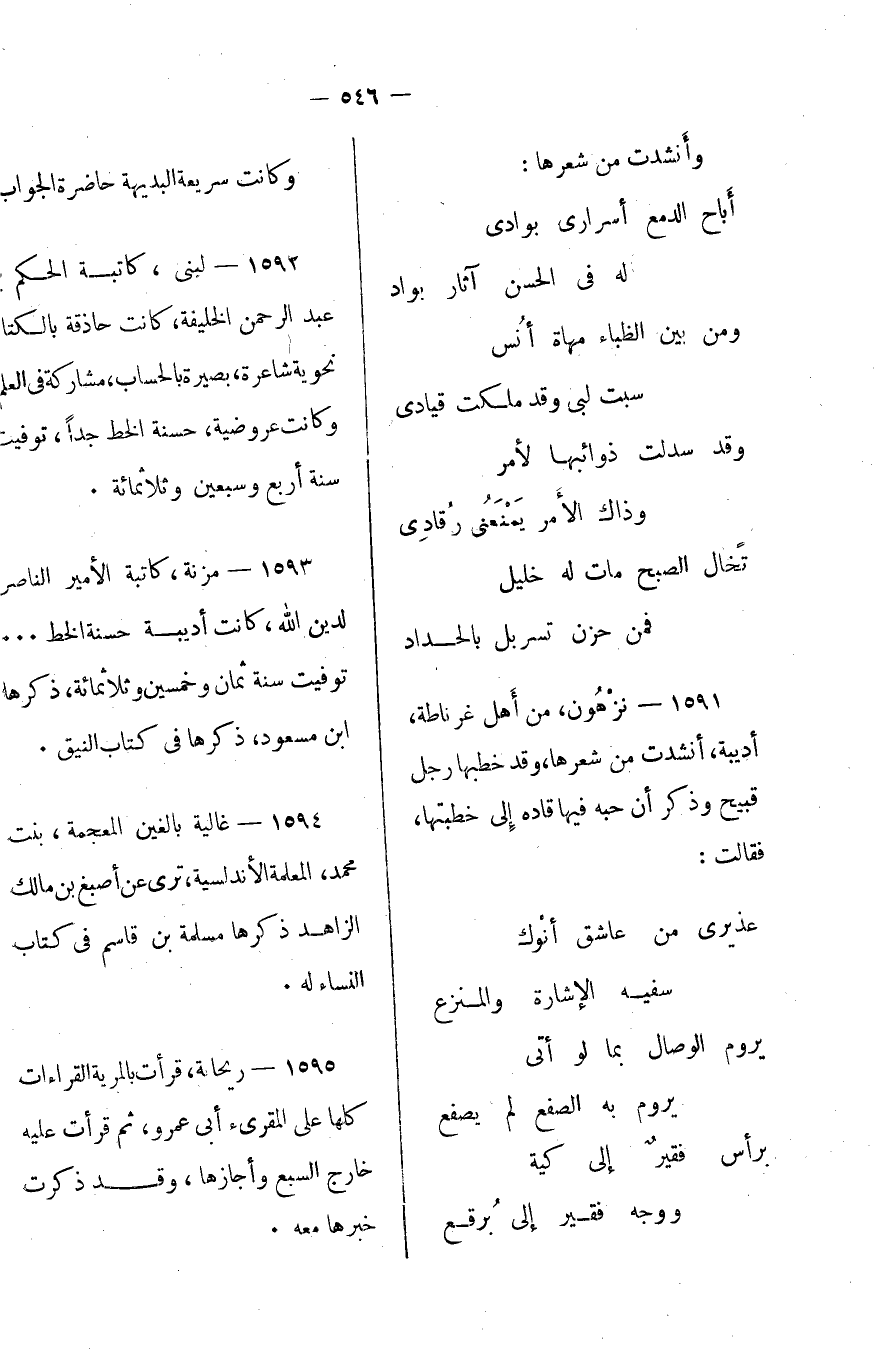 — ٥٤٦ —
وأَنشدت من شعرها :
أَباح الدمع أسرارى بوادى
له فى الحسن آثار بواد
ومن بين الظباء مهاة أُنس
سبت لبى وقد ملكت قيادى
وقد سدلت ذوائبها لأمر
وذاك الأَمر يَمْنَعُنى رُقادِى
تَخال الصبح مات له خليل
فمن حزن تسربل بالحداد
١٥٩١ — نَزْهُون، من أَهل غرناطة،
أديبة، أنشدت من شعرها، وقد خطبها رجل
قبيح وذكر أن حبه فيها قاده إِلى خطبتها،
فقالت :
عذيرى من عاشق أنْوك
سفيه الإشارة والمنزع
يروم الوصال بما لو أتى
يروم به الصفع لم يصفع
برأس فقيرٌ إلى كية
ووجه فقير إلى بُرقع
وكانت سريعة البديهة حاضرة الجواب
١٥٩٢ — لبنى ، كاتبة الحكم
عبد الرحمن الخليفة، كانت حاذقة بالكتا
نحوية شاعرة، بصيرة بالحساب، مشاركة فى العلم
وكانت عروضية، حسنة الخط جداً ، توفيت
سنة أربع وسبعين وثلاثمائة .
١٥٩٣ — مزنة ، كاتبة الأمير الناصر
لدين الله ، كانت أديبة حسنة الخط ...
توفيت سنة ثمان وخمسين وثلاثمائة، ذكرها
ابن مسعود، ذكرها فى كتاب النيق .
١٥٩٤ — غالية بالغين المعجمة ، بنت
محمد، المعلمة الأندلسية، ترى عن أصبغ بن مالك
الزاهد ذكرها مسلمة بن قاسم فى كتاب
النساء له .
١٥٩٥ — ريحانة، قرأت بالمرية القراءات
كلها على المقرىء أبى عمرو، ثم قرأت عليه
خارج السبع وأجازها ، وقد ذكرت
خبرها معه .